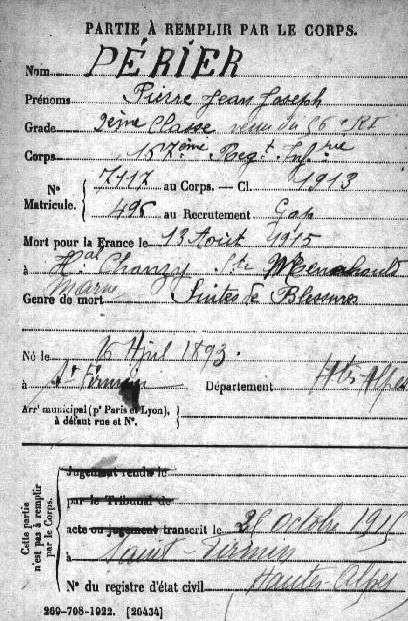 PARTIE À REMPLIR PAR LE CORPS.
Nom PÉRIER
Prénoms Pierre Jean Joseph
Grade 2ème Classe venu du 96e RI
Corps 157ème Regt Infrie
N° Matricule. 7117 au Corps. — Cl. 1913
496 au Recrutement Gap
Mort pour la France le 13 Août 1915
à Hal Changy Ste Menehould
Marne
Genre de mort Suites de Blessures
Né le 16 Avril 1893.
à St Firmin Département Htes Alpes
Arrt municipal (pr Paris et Lyon), à défaut rue et N°.
Cette partie n'est pas à remplir par le Corps.
Jugement rendu le
par le Tribunal de
acte ou jugement transcrit le 25 octobre 1915
à Saint-Firmin
Hautes-Alpes
N° du registre d'état civil
269-708-1922. [26434]